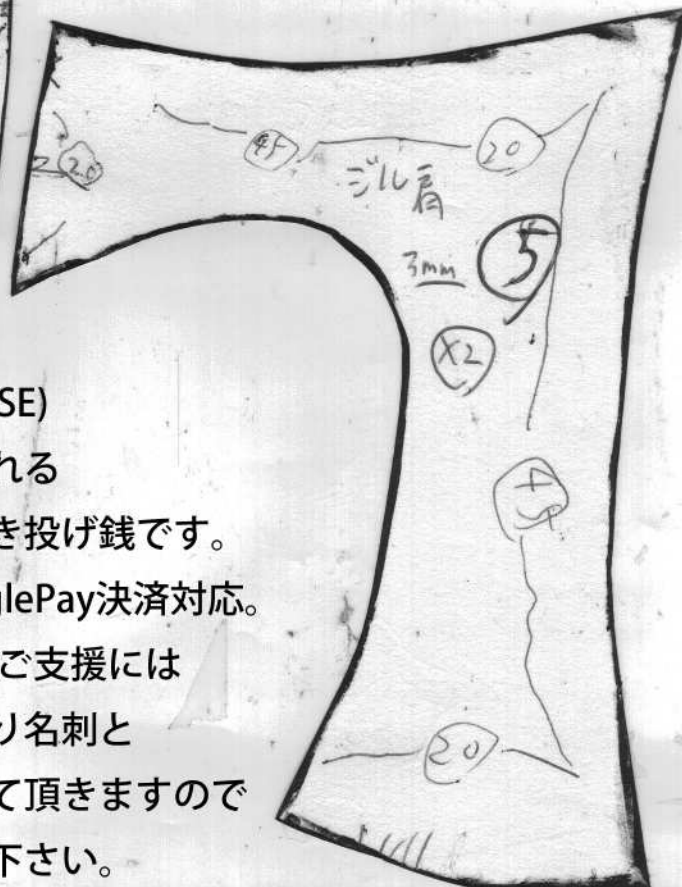 45
20
20
ジル肩
5
3mm
X2
SE)
れる
き投げ銭です。
glePay決済対応。
ご支援には
り名刺と
20
て頂きますので
下さい。